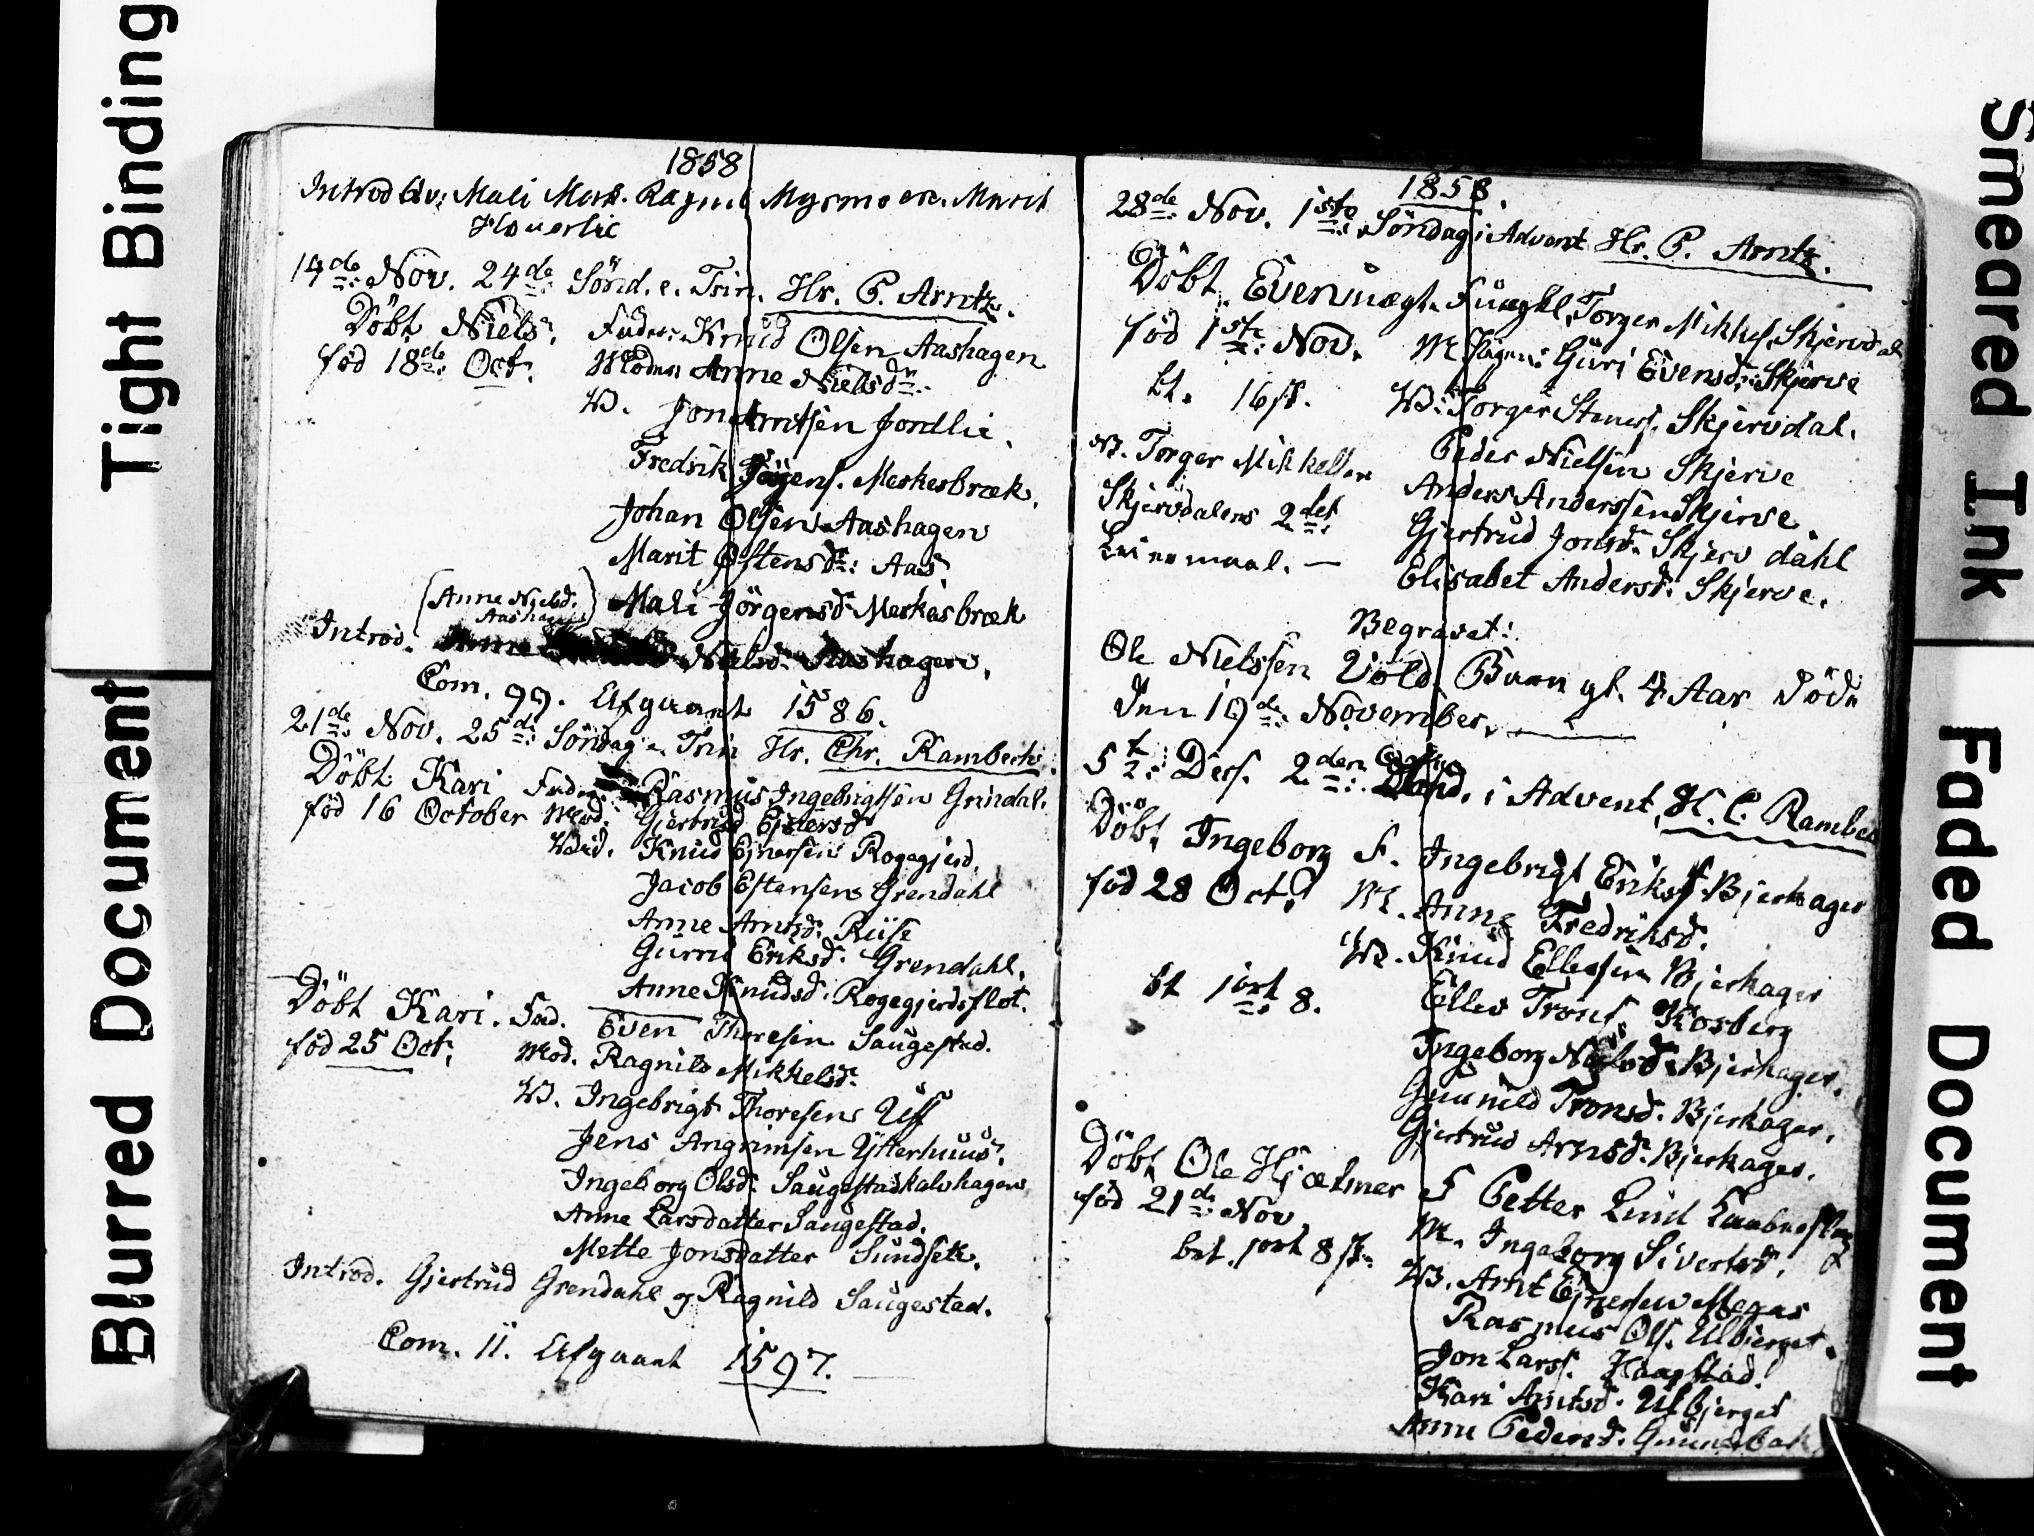 Tight Binding
Blurred Document
Smeared Ink
Faded Document
1858
Introd av: Mali Merk. Ragnil Myrmoen. Marit
Houerlie
14de Nov. 24de Sönd. e. Trin. Hr. P. Arntz.
Döbt Niels. Fader: Knud Olsen Aashagen
föd 18de Oct. Moder Anne Nielsdr.
W. Jon Arntsen Jordlie.
Fredrik Jögens. Merkesbræk.
Johan Olsen Aashagen
Marit Østensdr: Aas.
(Anne Nielsd. Aashagen) Mali Jörgensdr Merkesbræk
Introd. Anne Nielsd. Aashagen.
Com. 99. Afgaaet 1586.
21de Nov. 25de Söndag e. Trin Hr. Chr. Rambech.
Döbt Kari Fader Rasmus Ingebrigtsen Grindal.
föd 16 October Mod. Gjertrud Ejnersdr
Wid. Knud Ejnersen Rogegjerd.
Jacob Estensen Grendahl
Anne Arntsdr. Riise
Gurru Eriksdr. Grendahl.
Anne Knudsd. Rogegjerdsflot.
Döbt Kari. Fad. Even Thoresen Saugestad.
föd 25 Oct. Mod. Ragnild Mikkelsdr
W. Ingebrigt Thoresen Uff
Jens Angrimsen Ytterhuus.
Ingeborg Olsdr. Saugestadkalvhagen
Anne Larsdatter Saugestad.
Mette Jonsdatter Sundsett.
Introd. Gjertrud Grendahl og Ragnild Saugestad.
Com. 11. Afgaaet 1597.
1858.
28de Nov. 1ste Söndag i Advent Hr. P. Arntz.
Döbt Even uægt. Fuaghl. Torger Mikkels. Skjervdal
föd 1ste Nov. M Pigen: Guri Evensdr: Skjerve
bt. 16 s. W: Torger Steners. Skjervdal.
Peder Nielsen Skjerve
N. Torger Mikkelsen Anders Anderssen Skjerve.
Skjervdalens 2det Gjertrud Jonsdr. Skjervdahl
Leiermaal. — Elisabet Andersdr. Skjerve.
Begravet:
Ole Nielssen Vold Barn gl. 4 Aar Döde
den 19de November.
5t Des. 2den Sönd. i Advent, H. C. Rambec
Döbt Ingeborg F. Ingebrigt Eriks. Bjerkager
föd 28 Oct. M. Anne Fredriksdr.
W. Knud Ellevsen Bjerkager
bt port 8. Ellev Trons. Kosberg
Ingeborg Nielsdr. Bjerkager.
Gunnild Tronsd. Bjerkager.
Gjertrud Arnsdr. Bjerkager.
Döbt Ole Hjælmer F Petter Lind
föd 21de Nov. M. Ingeborg Sivertsd.
bet. port 8 s. W. Arnt Ejnersen Megas
Rasmus Ols. Ulbjerget.
Jon Larss. Haagstad.
Kari Arntsd. Ulbjerget
Anne Pedersd. Gunnesbak